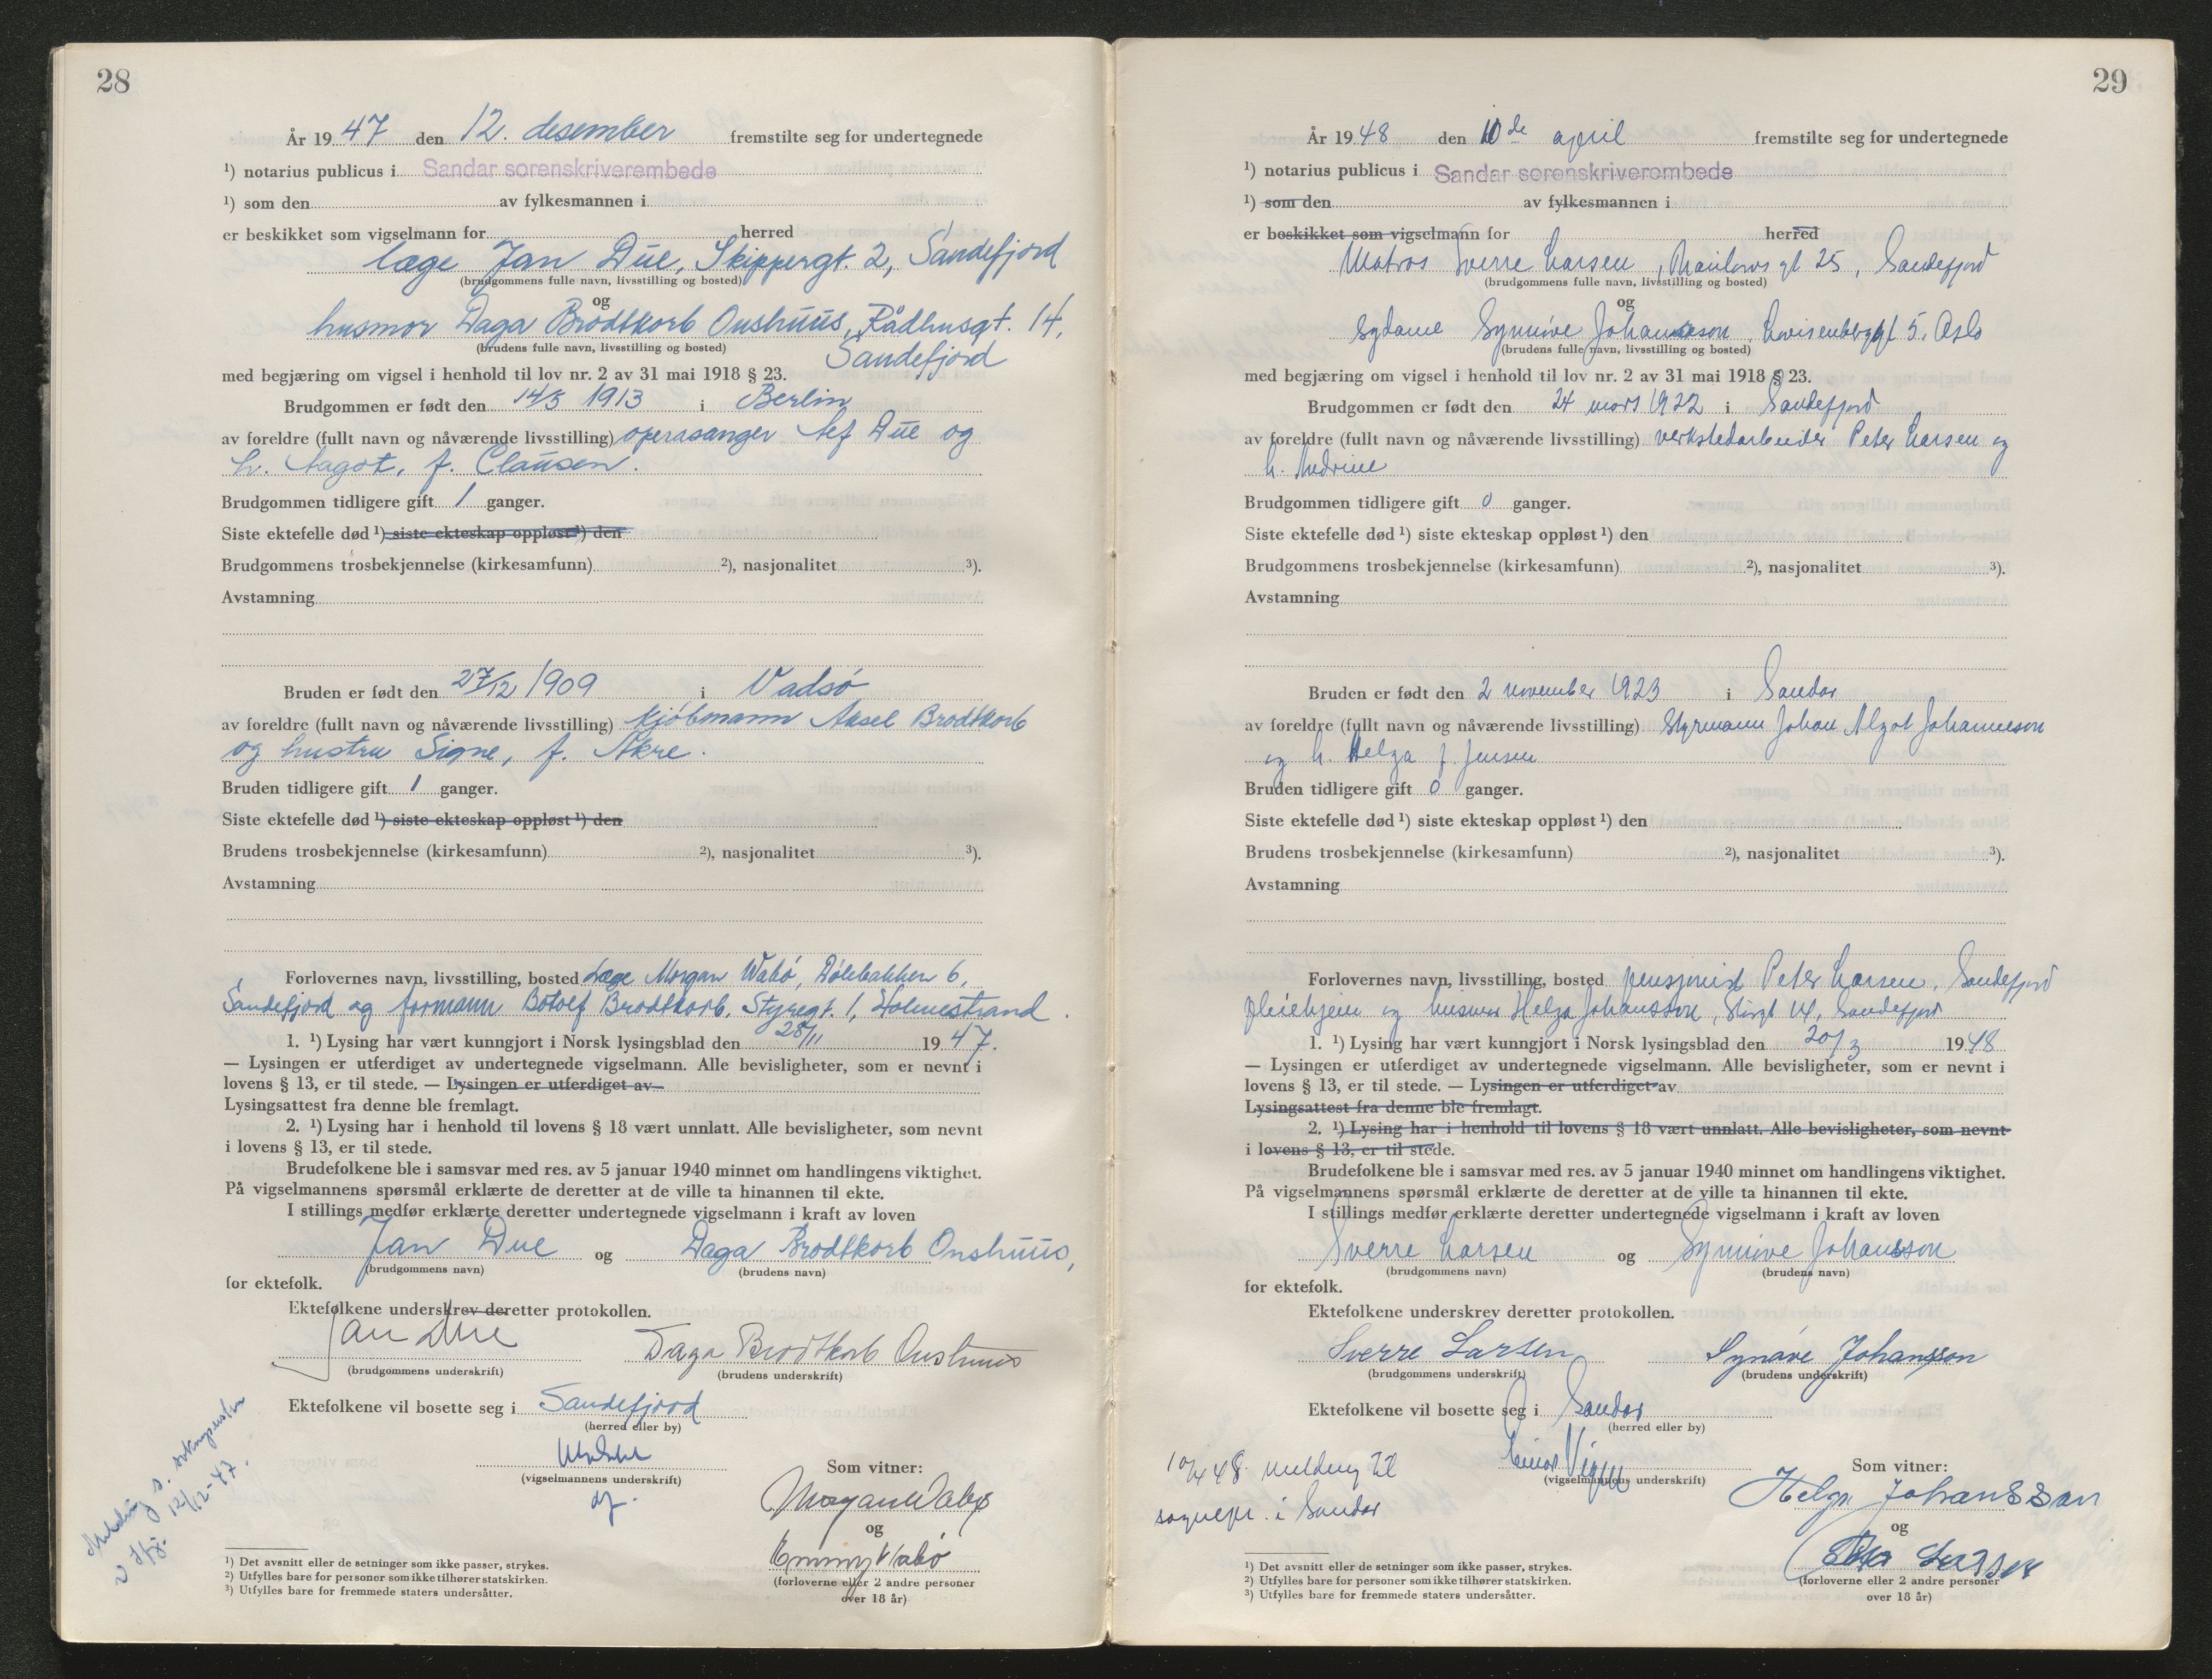 28
År 1947 den 12. desember fremstilte seg for undertegnede
¹) notarius publicus i Sandar sorenskriverembede
¹) som den av fylkesmannen i
er beskikket som vigselmann for herred
læge Jan Due, Skippergt. 2, Sandefjord
(brudgommens fulle navn, livsstilling og bosted)
og
husmor Daga Brodtkorb Onshuus, Rådhusgt. 14,
(brudens fulle navn, livsstilling og bosted) Sandefjord
med begjæring om vigsel i henhold til lov nr. 2 av 31 mai 1918 § 23.
Brudgommen er født den 14/5 1913 i Berlin
av foreldre (fullt navn og nåværende livsstilling) operasanger Lef Due og
h. Aagot, f. Clausen.
Brudgommen tidligere gift 1 ganger.
Siste ektefelle død ¹) siste ekteskap oppløst ¹) den
Brudgommens trosbekjennelse (kirkesamfunn) ²), nasjonalitet ³).
Avstamning
Bruden er født den 27/12 1909 i Vadsö
av foreldre (fullt navn og nåværende livsstilling) kjöbmann Aksel Brodtkorb
og hustru Signe, f. Akre.
Bruden tidligere gift 1 ganger.
Siste ektefelle død ¹) siste ekteskap oppløst ¹) den
Brudens trosbekjennelse (kirkesamfunn) ²), nasjonalitet ³).
Avstamning
Forlovernes navn, livsstilling, bosted Læge Morgan Wabö, Dölebakken 6,
Sandefjord og formann Botolf Brodtkorb, Styregt. 1, Holmestrand.
1. ¹) Lysing har vært kunngjort i Norsk lysingsblad den 28/11 1947.
— Lysingen er utferdiget av undertegnede vigselmann. Alle bevisligheter, som er nevnt i
lovens § 13, er til stede. — Lysingen er utferdiget av
Lysingsattest fra denne ble fremlagt.
2. ¹) Lysing har i henhold til lovens § 18 vært unnlatt. Alle bevisligheter, som nevnt
i lovens § 13, er til stede.
Brudefolkene ble i samsvar med res. av 5 januar 1940 minnet om handlingens viktighet.
På vigselmannens spørsmål erklærte de deretter at de ville ta hinannen til ekte.
I stillings medfør erklærte deretter undertegnede vigselmann i kraft av loven
Jan Due og Daga Brodtkorb Onshuus,
(brudgommens navn) (brudens navn)
for ektefolk.
Ektefolkene underskrev deretter protokollen.
Jan Due Daga Brodtkorb Onshuus
(brudgommens underskrift) (brudens underskrift)
Ektefolkene vil bosette seg i Sandefjord
(herred eller by)
(vigselmannens underskrift)
Som vitner:
Morgan Wabö
og
Emmy Wabö
(forloverne eller 2 andre personer
over 18 år)
Melding s. soknepresten
i Sfj. 12/12-47.
¹) Det avsnitt eller de setninger som ikke passer, strykes.
²) Utfylles bare for personer som ikke tilhører statskirken.
³) Utfylles bare for fremmede staters undersåtter.
29
År 1948 den 10de april fremstilte seg for undertegnede
¹) notarius publicus i Sandar sorenskriverembede
¹) som den av fylkesmannen i
er beskikket som vigselmann for herred
Matros Sverre Larsen, gt 25, Sandefjord
(brudgommens fulle navn, livsstilling og bosted)
og
Sydame Synnöve Johansson, Lovisenberggt 5. Oslo
(brudens fulle navn, livsstilling og bosted)
med begjæring om vigsel i henhold til lov nr. 2 av 31 mai 1918 § 23.
Brudgommen er født den 24 mars 1922 i Sandefjord
av foreldre (fullt navn og nåværende livsstilling) verkstedarbeider Peter Larsen og
h. Andrine
Brudgommen tidligere gift 0 ganger.
Siste ektefelle død ¹) siste ekteskap oppløst ¹) den
Brudgommens trosbekjennelse (kirkesamfunn) ²), nasjonalitet ³).
Avstamning
Bruden er født den 2 november 1923 i Sandar
av foreldre (fullt navn og nåværende livsstilling) styrmann Johan Algot Johannesson
og h. Helga f. Jensen
Bruden tidligere gift 0 ganger.
Siste ektefelle død ¹) siste ekteskap oppløst ¹) den
Brudens trosbekjennelse (kirkesamfunn) ²), nasjonalitet ³).
Avstamning
Forlovernes navn, livsstilling, bosted pensjonist Peter Larsen, Sandefjord
pleiehjem og husmor Helga Johansson, Storgt 14, Sandefjord
1. ¹) Lysing har vært kunngjort i Norsk lysingsblad den 20/3 1948
— Lysingen er utferdiget av undertegnede vigselmann. Alle bevisligheter, som er nevnt i
lovens § 13, er til stede. — Lysingen er utferdiget av
Lysingsattest fra denne ble fremlagt.
2. ¹) Lysing har i henhold til lovens § 18 vært unnlatt. Alle bevisligheter, som nevnt
i lovens § 13, er til stede.
Brudefolkene ble i samsvar med res. av 5 januar 1940 minnet om handlingens viktighet.
På vigselmannens spørsmål erklærte de deretter at de ville ta hinannen til ekte.
I stillings medfør erklærte deretter undertegnede vigselmann i kraft av loven
Sverre Larsen og Synnöve Johansson
(brudgommens navn) (brudens navn)
for ektefolk.
Ektefolkene underskrev deretter protokollen.
Sverre Larsen Synnöve Johansson
(brudgommens underskrift) (brudens underskrift)
Ektefolkene vil bosette seg i Sandar
(herred eller by)
10/4 48 melding til
sognepr. i Sandar
(vigselmannens underskrift)
Som vitner:
Helga Johansson
og
Peter Larsen
(forloverne eller 2 andre personer
over 18 år)
¹) Det avsnitt eller de setninger som ikke passer, strykes.
²) Utfylles bare for personer som ikke tilhører statskirken.
³) Utfylles bare for fremmede staters undersåtter.